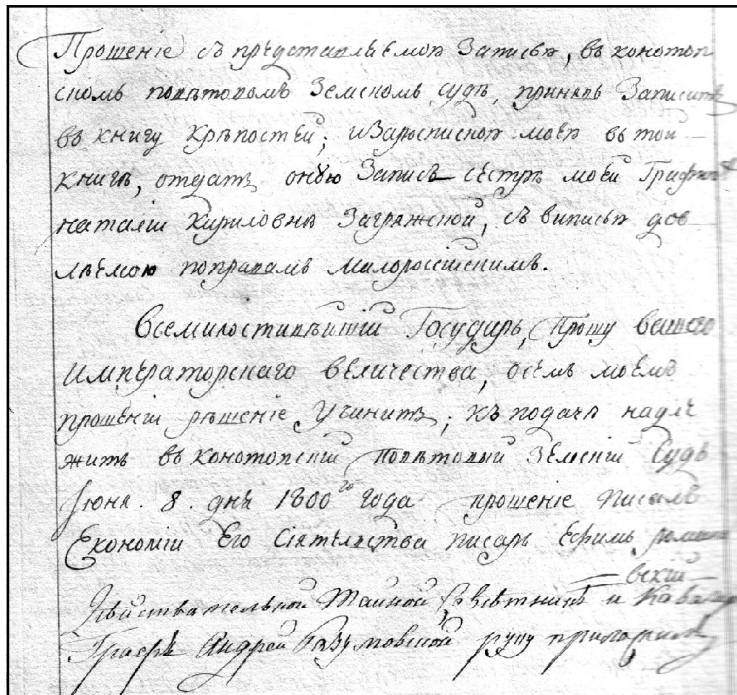 Прошеніе съ представляемой Записью, въ коноtop
скомъ повѣтовомъ Земскомъ судѣ, принявъ Записать
въ книгу Крѣпостей; изароспискою моею въ той
книгѣ, отдать оную Запись сестрѣ моей
наталіи Кириловнѣ Загряжской, съ виписью дов
лѣемою поправамъ малороссійскимъ.
Всемилостивѣйшій Государь, Прошу вашего
императорскаго величества, осемъ моемъ
прошеніи рѣшеніе учинить; къ подачѣ надле
житъ въ конотопскій повѣтовый Земскій Судъ
Іюня. 8. дня 1800го года прошеніе писалъ
Економіи Его Сіятельства писарь Ефимъ
вскій
Дѣйствительной Тайной Совѣтникъ и Кавалеръ
Графъ Андрей Разумовской руку приложилъ